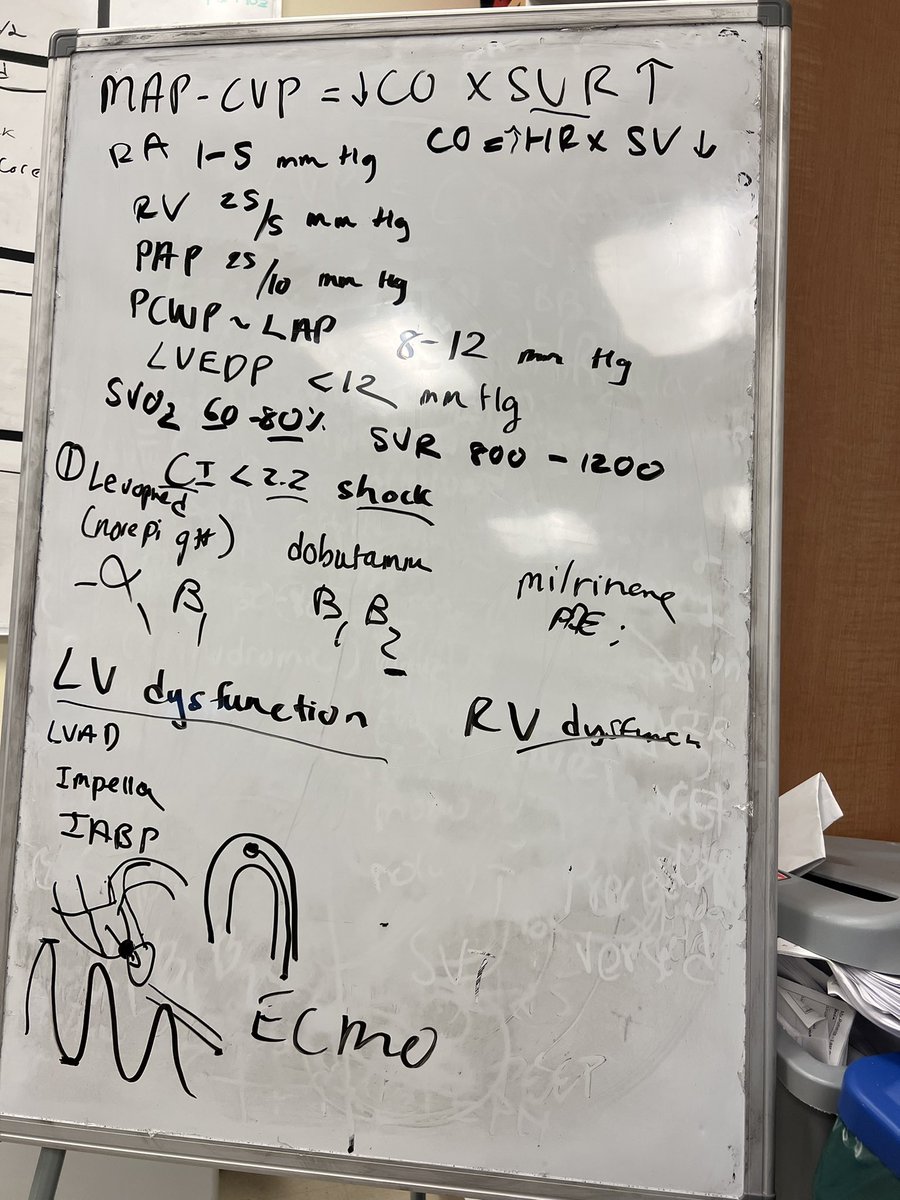 MAP-CVP = ↓CO x SVR ↑
CO = ↑HR x SV ↓
RA 1-5 mm Hg
RV 25/5 mm Hg
PAP 25/10 mm Hg
PCWP ~ LAP 8-12 mm Hg
LVEDP <12 mm Hg
SVO2 60-80%
SVR 800-1200
① CI < 2.2 shock
Levophed
(norepi gtt) dobutamine milrinone
-α1 β1 β1 β2 PDE;
LV dysfunction RV dysfunction
LVAD
Impella
IABP
ECMO